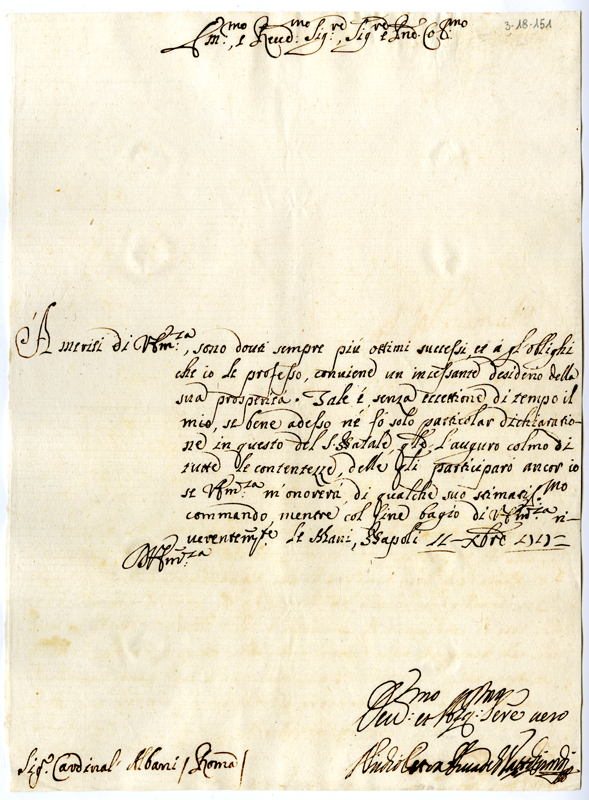 3-18-151
Em.mo, e Reud: Sig.re, Sig.re e Pnd. Co.mo
A meriti di V. Em.za, sono douti sempre più ottimi successi, et à gl'oblighi
che io le professo, conviene un incessante desiderio della
sua prosperità. Tale è, senza eccettione di tempo il
mio, se bene adesso né fò solo particolar dichiaratio-
ne in questo del S. Natale, q.le l'auguro colmo di
tutte le contentezze, delle q.li participarò ancor io
se V. Em.za m'onorerà di qualche suo stimatiss.mo
commando mentre col fine bagio di V. Em.za ri-
uerentem.te le Mani, Napoli 11 Xbre 1717
D. V. Em.za
Deu: et Obg: Sere uero
Sig.r Cardinal' Albani / Roma /